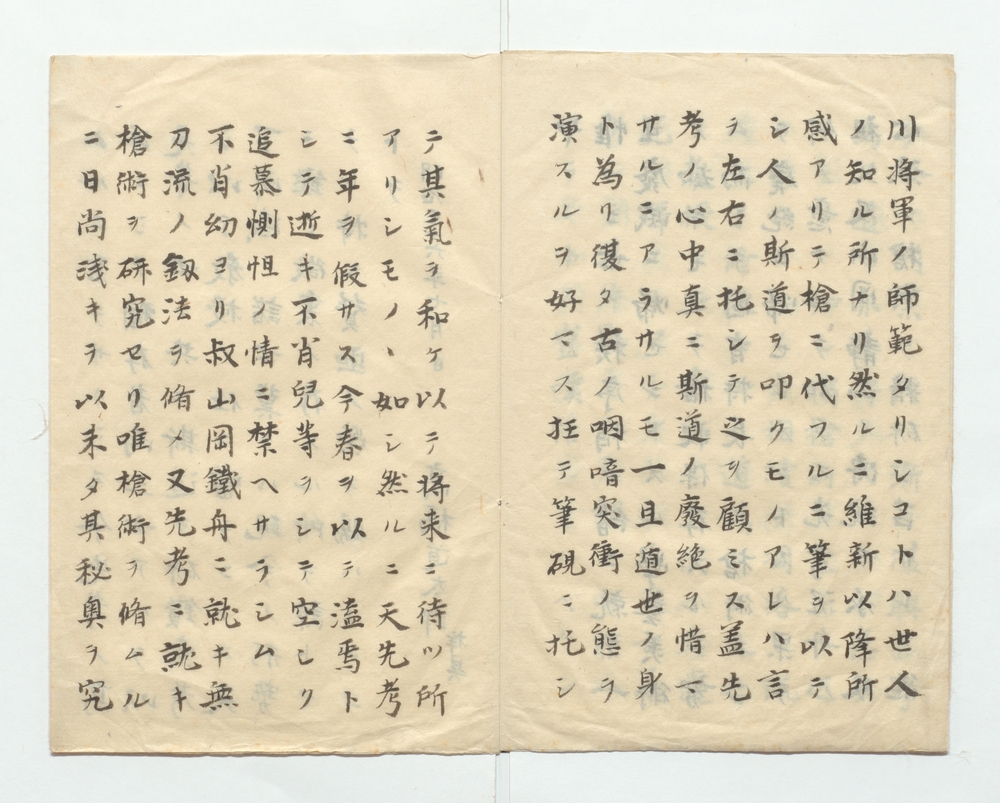 川將軍ノ師範タリシコトハ世人
ノ知ル所ナリ然ルニ維新以降所
感アリテ槍ニ代フルニ筆ヲ以テ
シ人ノ斯道ヲ叩クモノアレハ言
ヲ左右ニ托シテ之ヲ顧ミス蓋先
考ノ心中真ニ斯道ノ廢絶ヲ惜マ
サルニアラサルモ一旦遁世ノ身
ト為リ復タ古ノ咽喑突衝ノ態ヲ
演スルヲ好マス抂テ筆硯ニ托シ
テ其氣ヲ和ケ以テ將来ニ待ツ所
アリシモノヽ如シ然ルニ天先考
ニ年ヲ假サス今春ヲ以テ溘焉ト
シテ逝キ不肖兒等ヲシテ空シク
追慕惻怛ノ情ニ禁ヘサラシム
不肖幼ヨリ叔山岡鐵舟ニ就キ無
刀流ノ釼法ヲ脩メ又先考ニ就キ
槍術ヲ研究セリ唯槍術ヲ脩ムル
ニ日尚淺キヲ以未タ其秘奥ヲ究